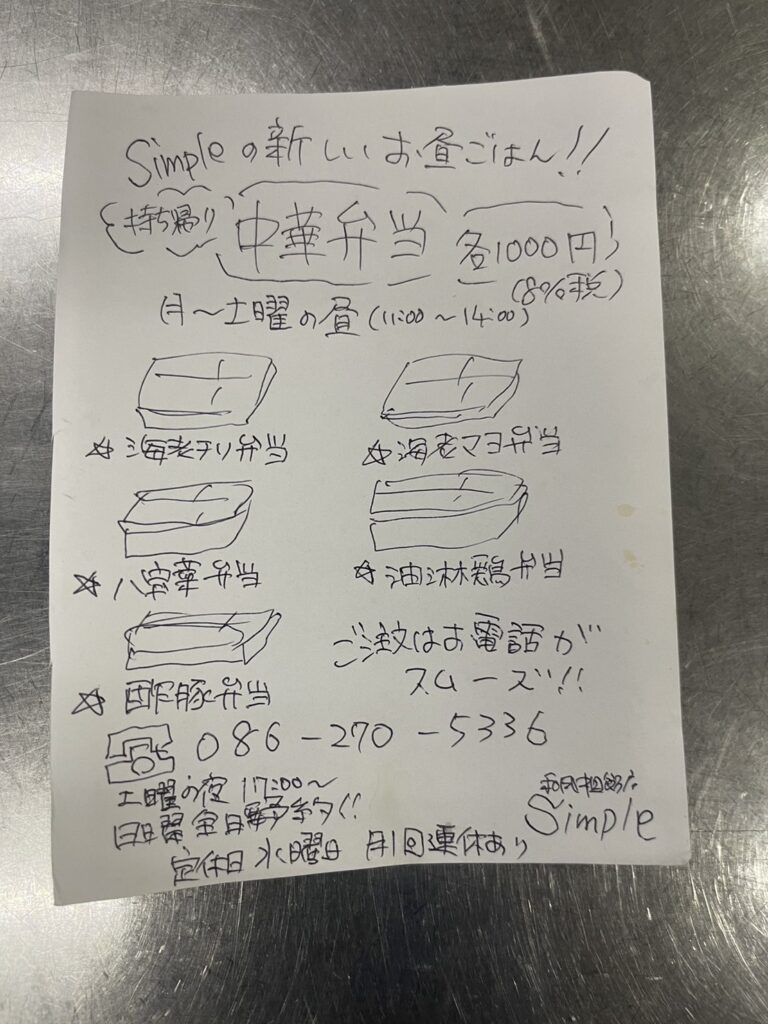 Simpleの新しいお昼ごはん!!
持ち帰り 中華弁当 各1000円
(8%税)
月〜土曜の昼(11:00〜14:00)
☆海老チリ弁当 ☆海老マヨ弁当
☆八宝菜弁当 ☆油淋鶏弁当
ご注文はお電話が
スムーズ!!
☆酢豚弁当
☎ 086-270-5336
土曜の夜 17:00〜
日曜 予約!!
Simple
定休日 水曜日 月1回連休あり